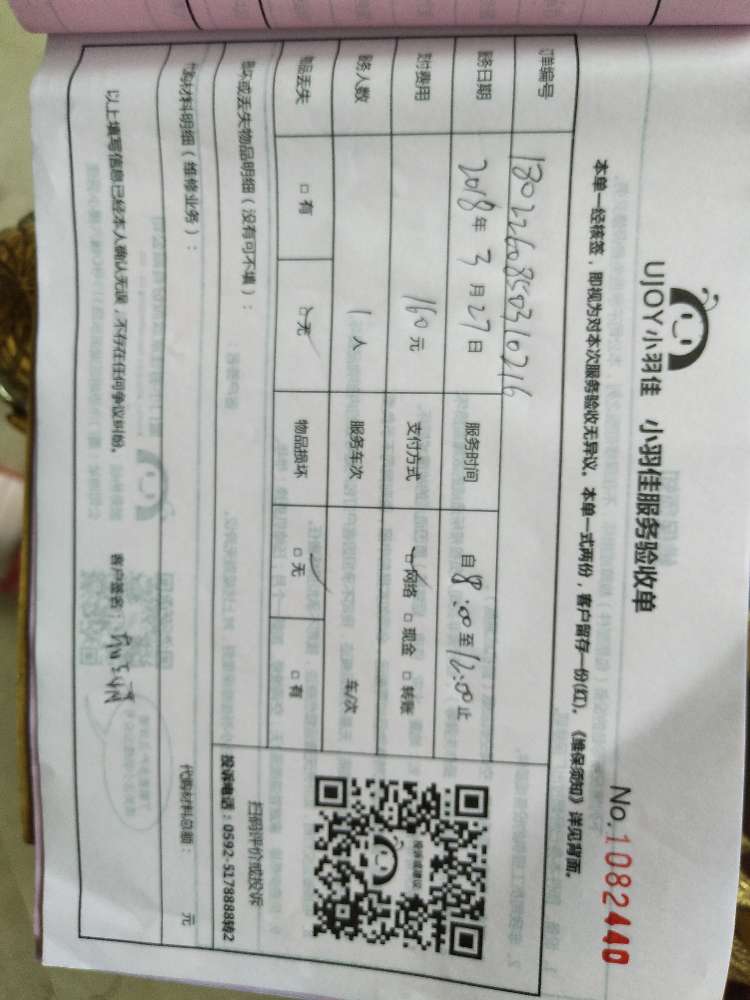 UJOY小羽佳 小羽佳服务验收单
No.1082440
本单一经核签，即视为对本次服务验收无异议。本单一式两份，客户留存一份(红)。《维保须知》详见背面。
单编号 1802260850310216
务日期 2018年3月27日 服务时间 自8:00至12:00止
付费用 160元 支付方式 □网络 □现金 □转账
务人数 1人 服务车次 车/次
物品丢失 □有 □无 物品损坏 □无 □有
损坏或丢失物品明细（没有可不填）：
投诉或建议
扫码评价或投诉
投诉电话：0592-5178888转2
代购材料明细（维修业务）：
代购材料总额： 元
以上填写信息已经本人确认无误，不存在任何争议纠纷。 客户签名：